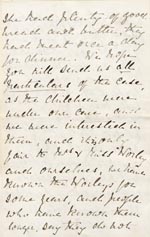 she had plenty of good
bread and butter, they
had meat once a day
for dinner. We hope
you will send us all
particulars of the case
as the children were
under our care, and
we were interested in
them, and it's only
fair to Mrs & Miss Worley
and ourselves, we have
known the Worleys for
some years, and people
who have known them
longer, say they do not